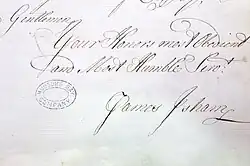 Gentlemen
Your Honors most Obedient
and Most Humble Serv.t
James Isham
COMPANY